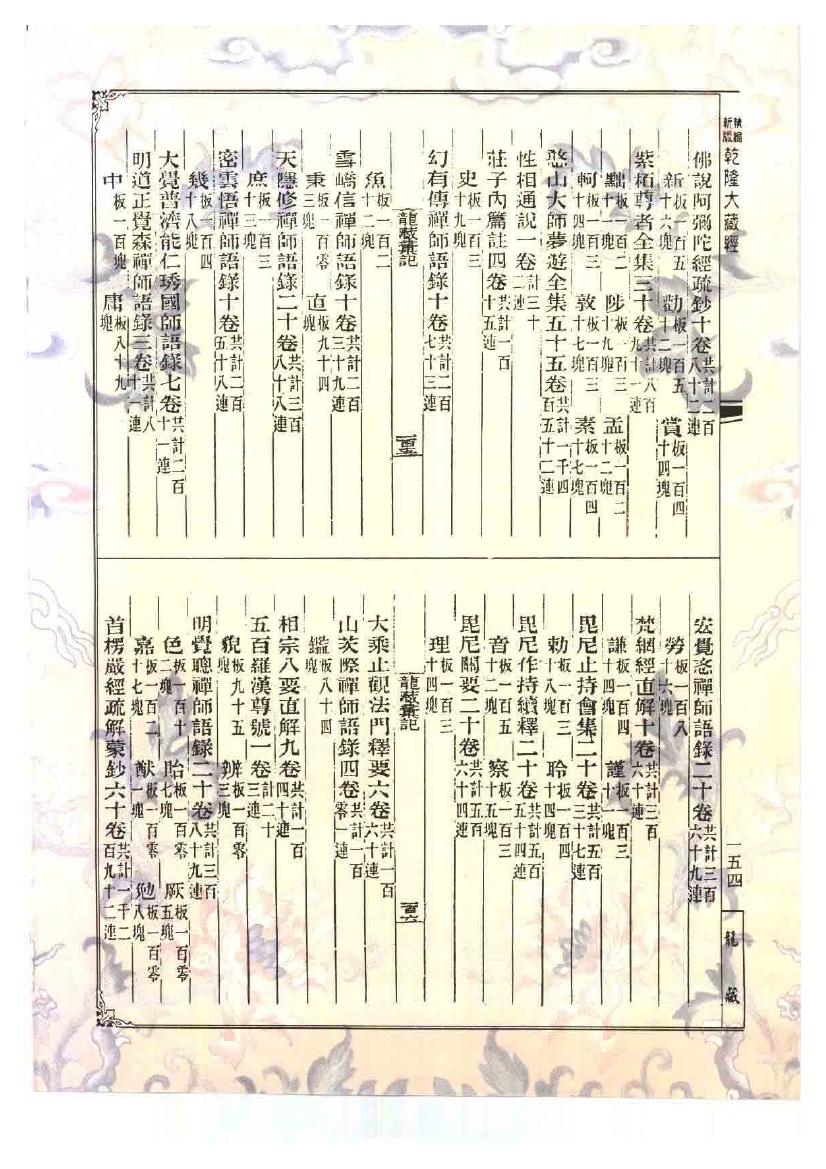 精縮新版 乾隆大藏經
佛說阿彌陀經疏鈔十卷 共計二百八十二連
新 板一百五十六塊 勸 板一百五十二塊 賞 板一百四十四塊
紫栢尊者全集三十卷 共計八百九十一連
黜 板一百二十一塊 陟 板一百三十九塊 孟 板一百二十二塊
軻 板一百三十四塊 敦 板一百三十七塊 素 板一百四十七塊
憨山大師夢遊全集五十五卷 共計一千四百五十二連
性相通說一卷 計三十二連
莊子內篇註四卷 共計一百十五連
史 板一百三十九塊
幻有傳禪師語錄十卷 共計二百七十三連
龍藏彙記
一百五
魚 板一百二十二塊
雪嶠信禪師語錄十卷 共計二百三十九連
秉 板一百零三塊 直 板九十四塊
天隱修禪師語錄二十卷 共計三百八十八連
庶 板一百三十三塊
密雲悟禪師語錄十卷 共計二百五十八連
幾 板一百四十八塊
大覺普濟能仁琇國師語錄七卷 共計二百十一連
明道正覺森禪師語錄三卷 共計八十一連
中 板一百塊 庸 板八十九塊
宏覺忞禪師語錄二十卷 共計三百六十九連
勞 板一百八十六塊
梵網經直解十卷 共計三百六十連
謙 板一百四十四塊 謹 板一百三十一塊
毘尼止持會集二十卷 共計五百三十七連
勅 板一百三十八塊 聆 板一百四十四塊
毘尼作持續釋二十卷 共計五百五十四連
音 板一百五十二塊 察 板一百三十五塊
毘尼關要二十卷 共計五百六十四連
理 板一百三十四塊
龍藏彙記
一百六
大乘止觀法門釋要六卷 共計一百六十連
山茨際禪師語錄四卷 共計一百零一連
鑑 板八十四塊
相宗八要直解九卷 共計一百四十連
五百羅漢尊號一卷 計二十三連
貌 板九十五塊 辨 板一百零三塊
明覺聰禪師語錄二十卷 共計三百八十九連
色 板一百十二塊 貽 板一百零七塊 厥 板一百零五塊
嘉 板一百二十七塊 猷 板一百零一塊 勉 板一百零八塊
首楞嚴經疏解蒙鈔六十卷 共計一千二百九十二連
一五四
龍藏